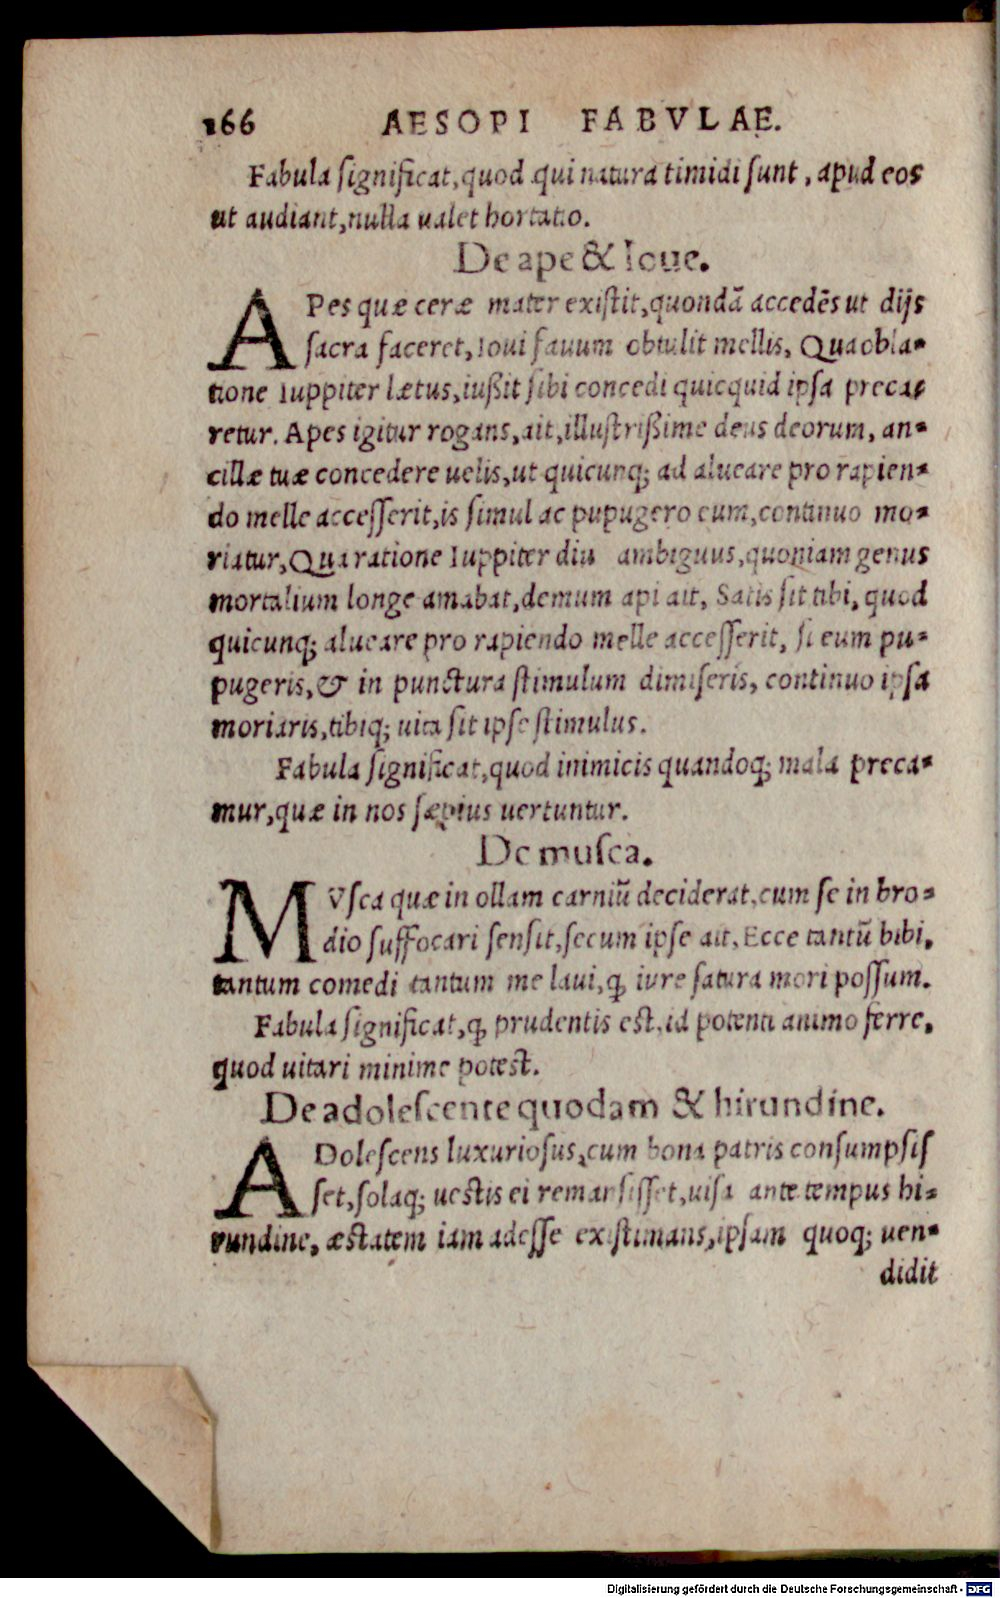 166 AESOPI FABVLAE.
Fabula ſignificat, quod qui natura timidi ſunt, apud eos
ut audiant, nulla ualet hortatio.
De ape & Ioue.
APes quæ ceræ mater exiſtit, quondā accedēs ut dijs
ſacra faceret, Ioui fauum obtulit mellis, Qua obla-
tione Iuppiter lætus, iußit ſibi concedi quicquid ipſa preca-
retur. Apes igitur rogans, ait, illuſtrißime deus deorum, an-
cillæ tuæ concedere uelis, ut quicunq; ad alueare pro rapien-
do melle acceſſerit, is ſimul ac pupugero eum, continuo mo-
riatur, Qua ratione Iuppiter diu ambiguus, quoniam genus
mortalium longe amabat, demum api ait, Satis ſit tibi, quod
quicunq; alueare pro rapiendo melle acceſſerit, ſi eum pu-
pugeris, & in punctura ſtimulum dimiſeris, continuo ipſa
moriaris, tibiq; uita ſit ipſe ſtimulus.
Fabula ſignificat, quod inimicis quandoq; mala preca-
mur, quæ in nos ſæpius uertuntur.
De muſca.
MVſca quæ in ollam carniū deciderat, cum ſe in bro-
dio ſuffocari ſenſit, ſecum ipſe ait, Ecce tantū bibi,
tantum comedi tantum me laui, ꝙ iure ſatura mori poſſum.
Fabula ſignificat, ꝙ prudentis eſt, id potenti animo ferre,
quod uitari minime poteſt.
De adoleſcente quodam & hirundine.
ADoleſcens luxurioſus, cum bona patris conſumpſiſ
ſet, ſolaq; ueſtis ei remanſiſſet, uiſa ante tempus hi-
rundine, æſtatem iam adeſſe exiſtimans, ipſam quoq; uen-
didit
Digitalisierung gefördert durch die Deutsche Forschungsgemeinschaft - DFG